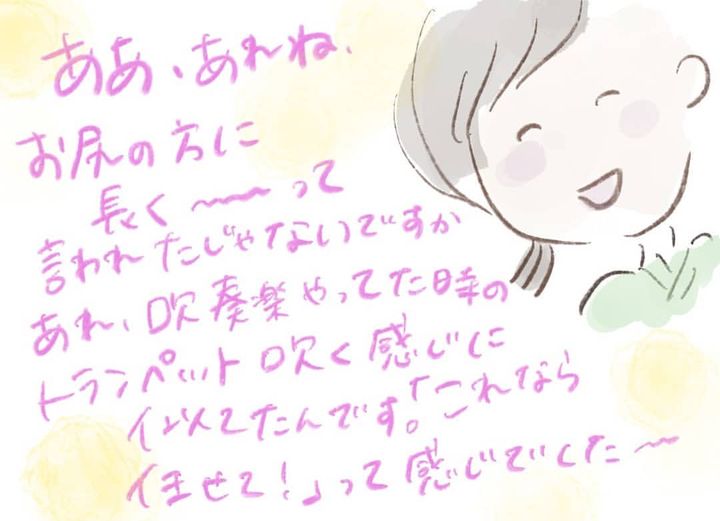 ああ、あれね、
お尻の方に
長く〜〜って
言われたじゃないですか
あれ、吹奏楽やってた時の
トランペット吹く感じに
似てたんです。「これなら
任せて!」って感じでした〜